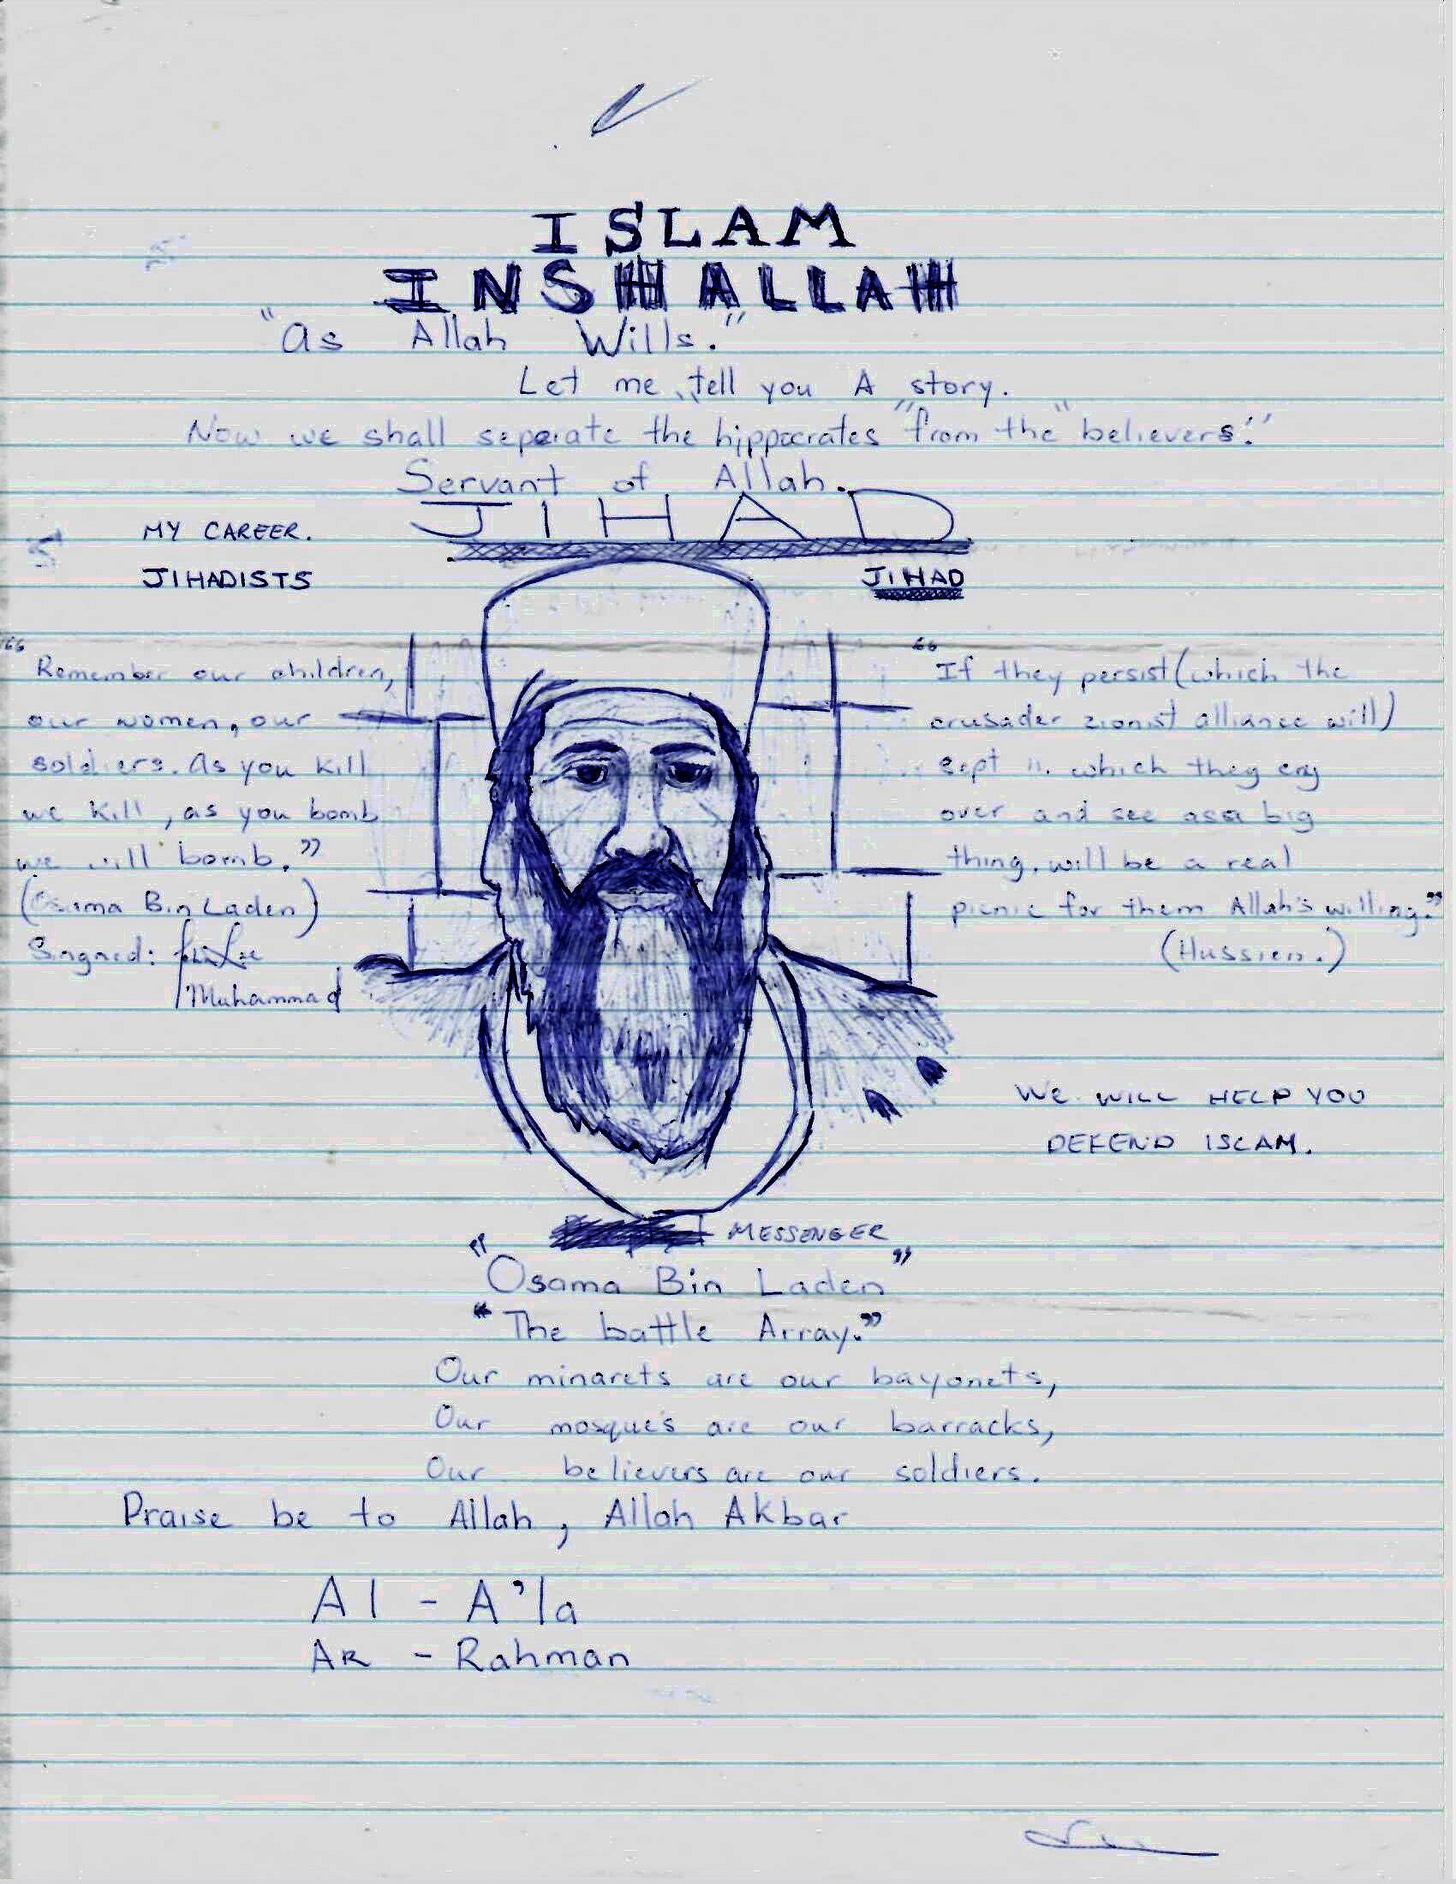 ISLAM
INSHALLAH
"As Allah Wills."
Let me, tell you A story.
Now we shall seperate the hippocrates "from the" believers!'
Servant of Allah.
JIHAD
MY CAREER.
JIHADISTS
JIHAD
"Remember our children,
our women, our
soldiers. As you kill
we kill, as you bomb
we will bomb."
(Osama Bin Laden)
Singned:
Muhammad
"If they persist (which the
crusader zionist alliance will)
sept 11. which they cry
over and see as a big
thing. will be a real
picnic for them Allah's willing."
(Hussien.)
WE WILL HELP YOU
DEFEND ISLAM.
MESSENGER
"Osama Bin Laden"
"The battle Array."
Our minarets are our bayonets,
Our mosques are our barracks,
Our believers are our soldiers.
Praise be to Allah, Allah Akbar
Al - A'la
AR - Rahman